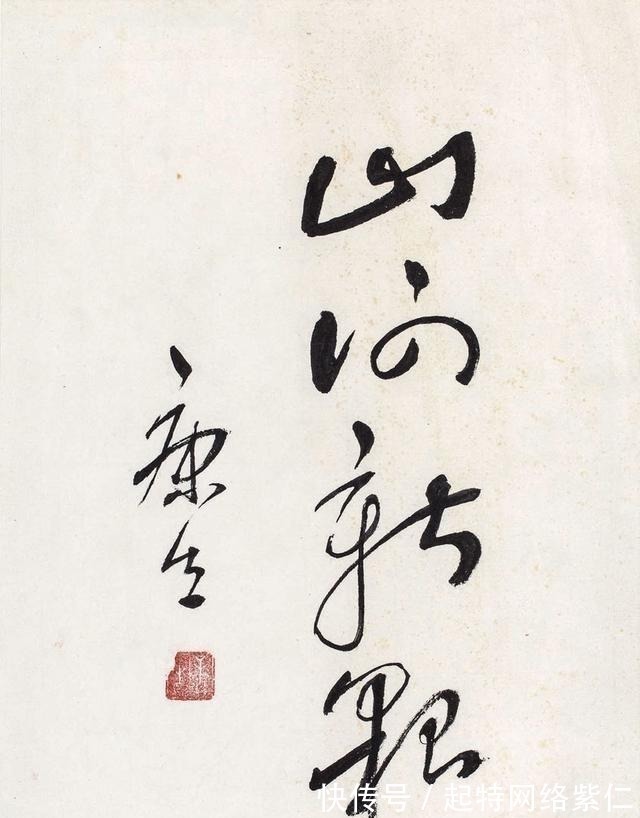 山河新
康生
快传号/起特网络紫仁